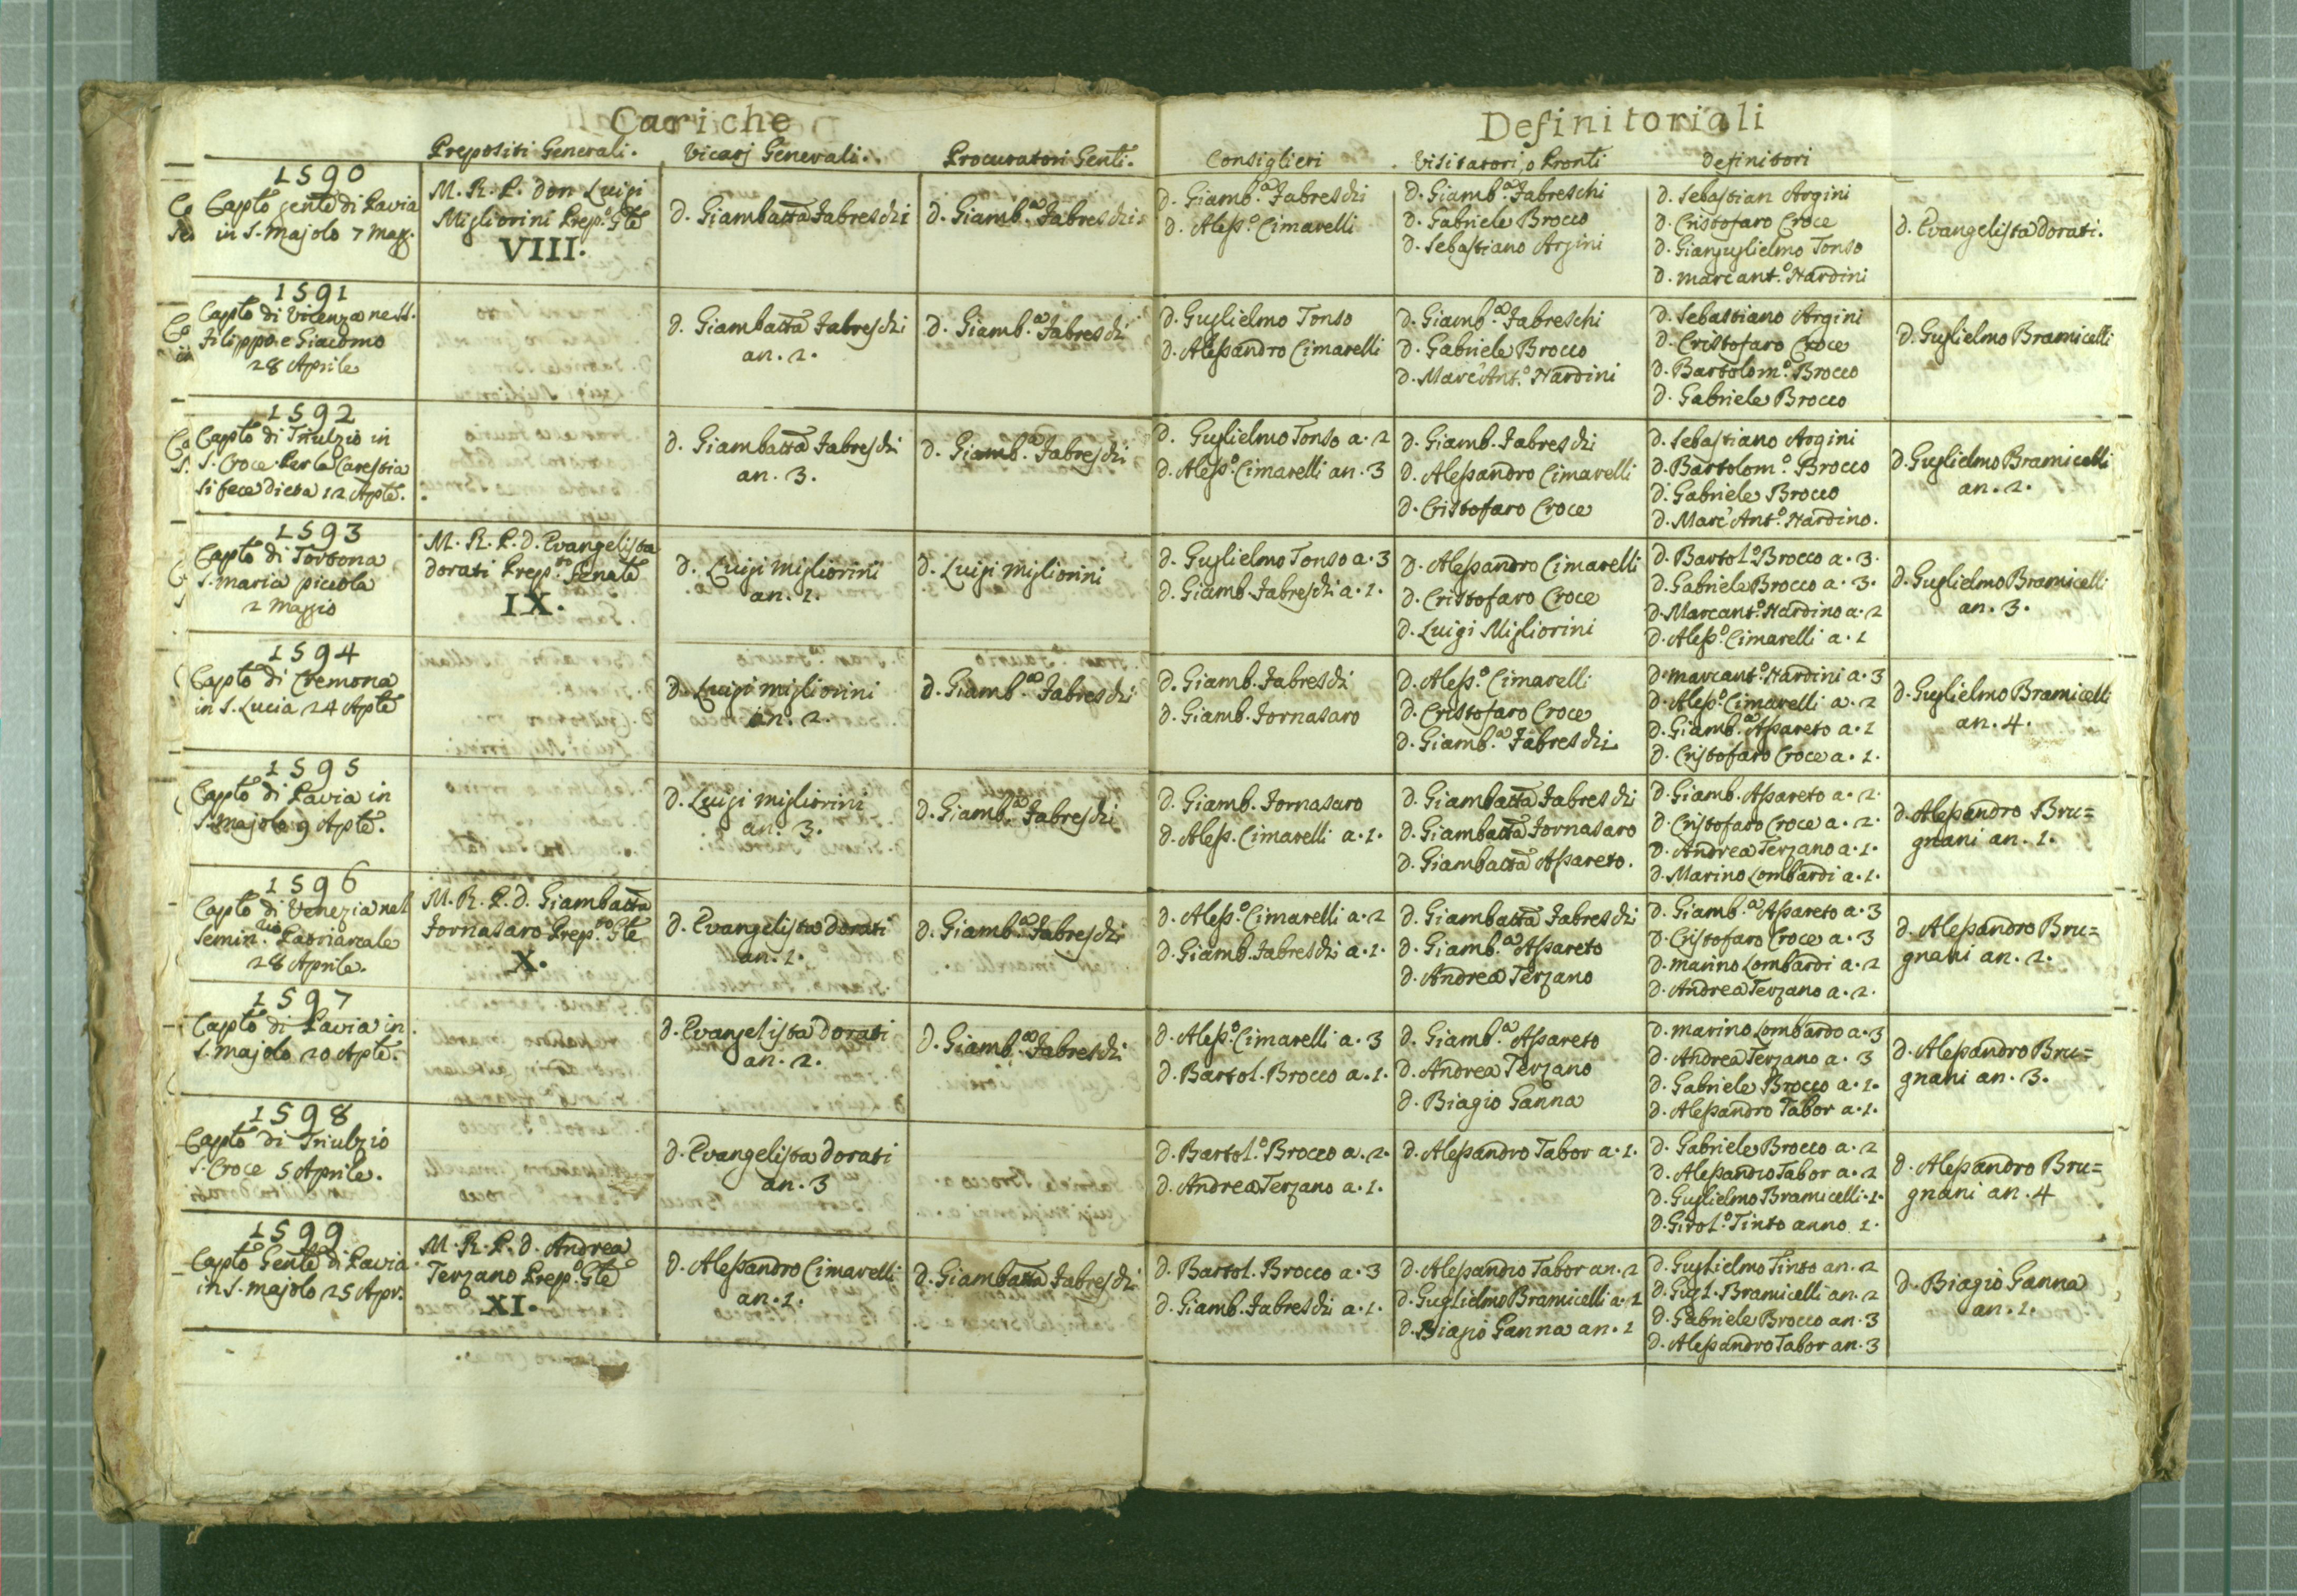 Cariche
Definitoriali
Prepositi Generali.
Vicarj Generali.
Procuratori Genli.
Consiglieri
Visitatori, o Pronti
Definitori
1590
Caplo genle di Pavia
in S. Majolo 7 Magg.
M. R. P. Don Luigi
Migliorini Prep.o Gle
VIII.
D. Giambatta Fabreschi
D. Giamb.a Fabreschi.
D. Giamb.a Fabreschi
D. Aless.o Cimarelli
D. Giamb.a Fabreschi
D. Gabriele Brocco
D. Sebastiano Argini
D. Sebastian Argini
D. Cristofaro Croce
D. Gianguglielmo Tonso
D. Marc'ant.o Nardini
D. Evangelista Dorati.
1591
Caplo di Vicenza ne SS.
Filippo e Giacomo
28 Aprile
D. Giambatta Fabreschi
an. 2.
D. Giamb.a Fabreschi
D. Guglielmo Tonso
D. Alessandro Cimarelli
D. Giamb.a Fabreschi
D. Gabriele Brocco
D. Marc'Ant.o Nardini
D. Sebastiano Argini
D. Cristofaro Croce
D. Bartolom.o Brocco
D. Gabriele Brocco
D. Guglielmo Bramicelli
1592
Caplo di Triulzio in
S. Croce. Per la Carestia
si fece dieta 12 Aple.
D. Giambatta Fabreschi
an. 3.
D. Giamb.a Fabreschi
D. Guglielmo Tonso a. 2
D. Aless.o Cimarelli an. 3
D. Giamb. Fabreschi
D. Alessandro Cimarelli
D. Cristofaro Croce
D. Sebastiano Argini
D. Bartolom.o Brocco
D. Gabriele Brocco
D. Marc'Ant.o Nardino.
D. Guglielmo Bramicelli
an. 2.
1593
Caplo di Tortona
S. Maria piccola
2 Maggio
M. R. P. D. Evangelista
Dorati Prep.to Genale
IX.
D. Luigi Migliorini
an. 1.
D. Luigi Migliorini
D. Guglielmo Tonso a. 3
D. Giamb. Fabreschi a. 1.
D. Alessandro Cimarelli
D. Cristofaro Croce
D. Luigi Migliorini
D. Bartol.o Brocco a. 3.
D. Gabriele Brocco a. 3.
D. Marcant.o Nardino a. 2
D. Aless.o Cimarelli a. 1
D. Guglielmo Bramicelli
an. 3.
1594
Caplo di Cremona
in S. Lucia 24 Aple
D. Luigi Migliorini
an. 2.
D. Giamb.a Fabreschi
D. Giamb. Fabreschi
D. Giamb. Fornasaro
D. Aless.o Cimarelli
D. Cristofaro Croce
D. Giamb.a Fabreschi
D. Marcant.o Nardini a. 3
D. Aless.o Cimarelli a. 2
D. Giamb.a Assareto a. 1
D. Cristofaro Croce a. 1.
D. Guglielmo Bramicelli
an. 4.
1595
Caplo di Pavia in
S. Majolo 9 Aple.
D. Luigi Migliorini
an. 3.
D. Giamb.a Fabreschi
D. Giamb. Fornasaro
D. Aless. Cimarelli a. 1.
D. Giambatta Fabreschi
D. Giambatta Fornasaro
D. Giambatta Assareto.
D. Giamb. Assareto a. 2.
D. Cristofaro Croce a. 2.
D. Andrea Terzano a. 1.
D. Marino Lombardi a. 1.
D. Alessandro Bru=
gnani an. 1.
1596
Caplo di Venezia nel
Semin.rio Patriarcale
28 Aprile.
M. R. P. D. Giambatta
Fornasaro Prep.to Gle
X.
D. Evangelista Dorati
an. 1.
D. Giamb.a Fabreschi
D. Aless.o Cimarelli a. 2
D. Giamb. Fabreschi a. 1.
D. Giambatta Fabreschi
D. Giamb.a Assareto
D. Andrea Terzano
D. Giamb.a Assareto a. 3
D. Cristofaro Croce a. 3
D. Marino Lombardi a. 2
D. Andrea Terzano a. 2.
D. Alessandro Bru=
gnani an. 2.
1597
Caplo di Pavia in
S. Majolo 20 Aple.
D. Evangelista Dorati
an. 2.
D. Giamb.a Fabreschi
D. Aless.o Cimarelli a. 3
D. Bartol. Brocco a. 1.
D. Giamb.a Assareto
D. Andrea Terzano
D. Biagio Ganna
D. Marino Lombardo a. 3
D. Andrea Terzano a. 3
D. Gabriele Brocco a. 1.
D. Alessandro Tabor a. 1.
D. Alessandro Bru=
gnani an. 3.
1598
Caplo di Triulzio
S. Croce 5 Aprile.
D. Evangelista Dorati
an. 3
D. Bartol.o Brocco a. 2.
D. Andrea Terzano a. 1.
D. Alessandro Tabor a. 1.
D. Gabriele Brocco a. 2
D. Alessandro Tabor a. 2
D. Guglielmo Bramicelli. 1.
D. Girol.o Tinto anno 1.
D. Alessandro Bru=
gnani an. 4
1599
Caplo Genle di Pavia
in S. Majolo 25 Apr.
M. R. P. D. Andrea
Terzano Prep.o Gle
XI.
D. Alessandro Cimarelli
an. 1.
D. Giambatta Fabreschi
D. Bartol. Brocco a. 3
D. Giamb. Fabreschi a. 1.
D. Alessandro Tabor an. 2
D. Guglielmo Bramicelli a. 1
D. Biagio Ganna an. 1
D. Guglielmo Tinto an. 2
D. Gugl. Bramicelli an. 2
D. Gabriele Brocco an. 3
D. Alessandro Tabor an. 3
D. Biagio Ganna
an. 1.